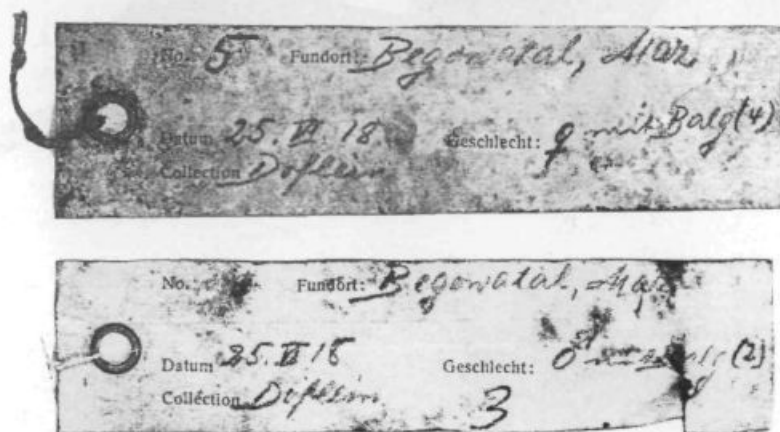 No. 5 Fundort: Begowatal, Mar.
Datum 25. VI. 18 Geschlecht: ♀ mit Balg (4)
Collection Doflein
No. Fundort: Begowatal, Mar.
Datum 25. VI 18 Geschlecht: ♂ (2)
Collection Doflein 3